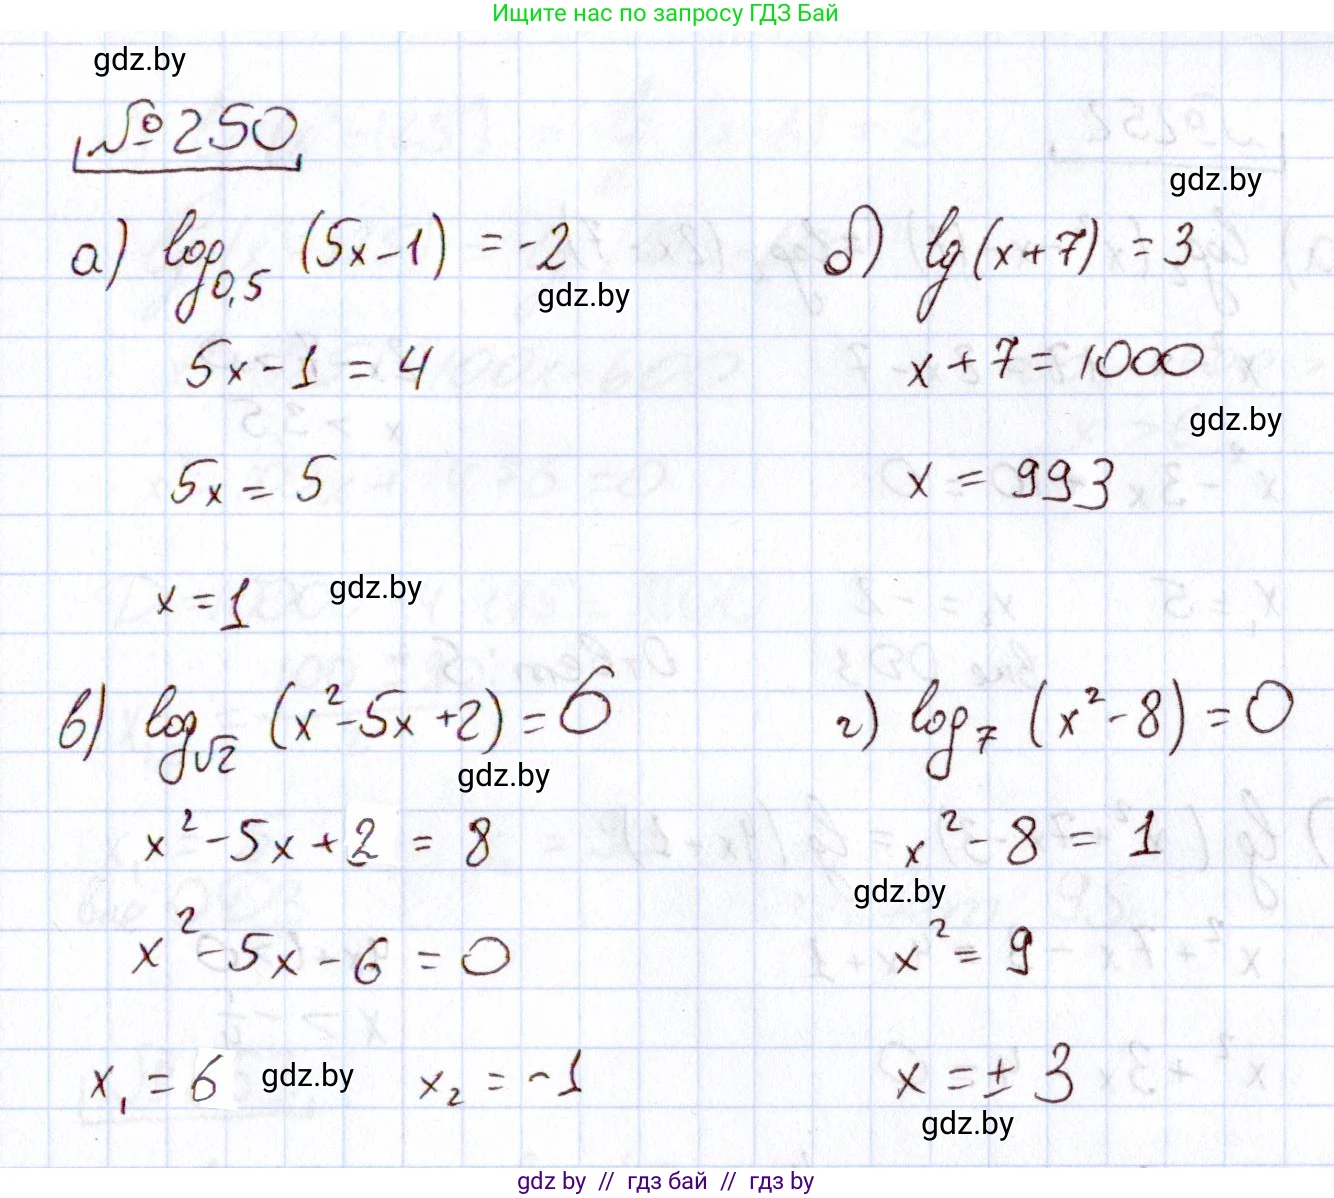 Ищите нас по запросу ГДЗ Бай
gdz.by
№250
gdz.by
а) log₀,₅ (5x-1) = -2
б) lg(x+7) = 3
gdz.by
5x-1 = 4
x+7=1000
gdz.by
5x = 5
x = 993
x = 1
gdz.by
в) log√2 (x²-5x+2) = 6
г) log₇ (x²-8) = 0
gdz.by
x²-5x+2 = 8
x²-8 = 1
gdz.by
x²-5x-6 = 0
x² = 9
x₁ = 6
gdz.by
x₂ = -1
x = ± 3
gdz.by
gdz by // гдз бай // гдз by